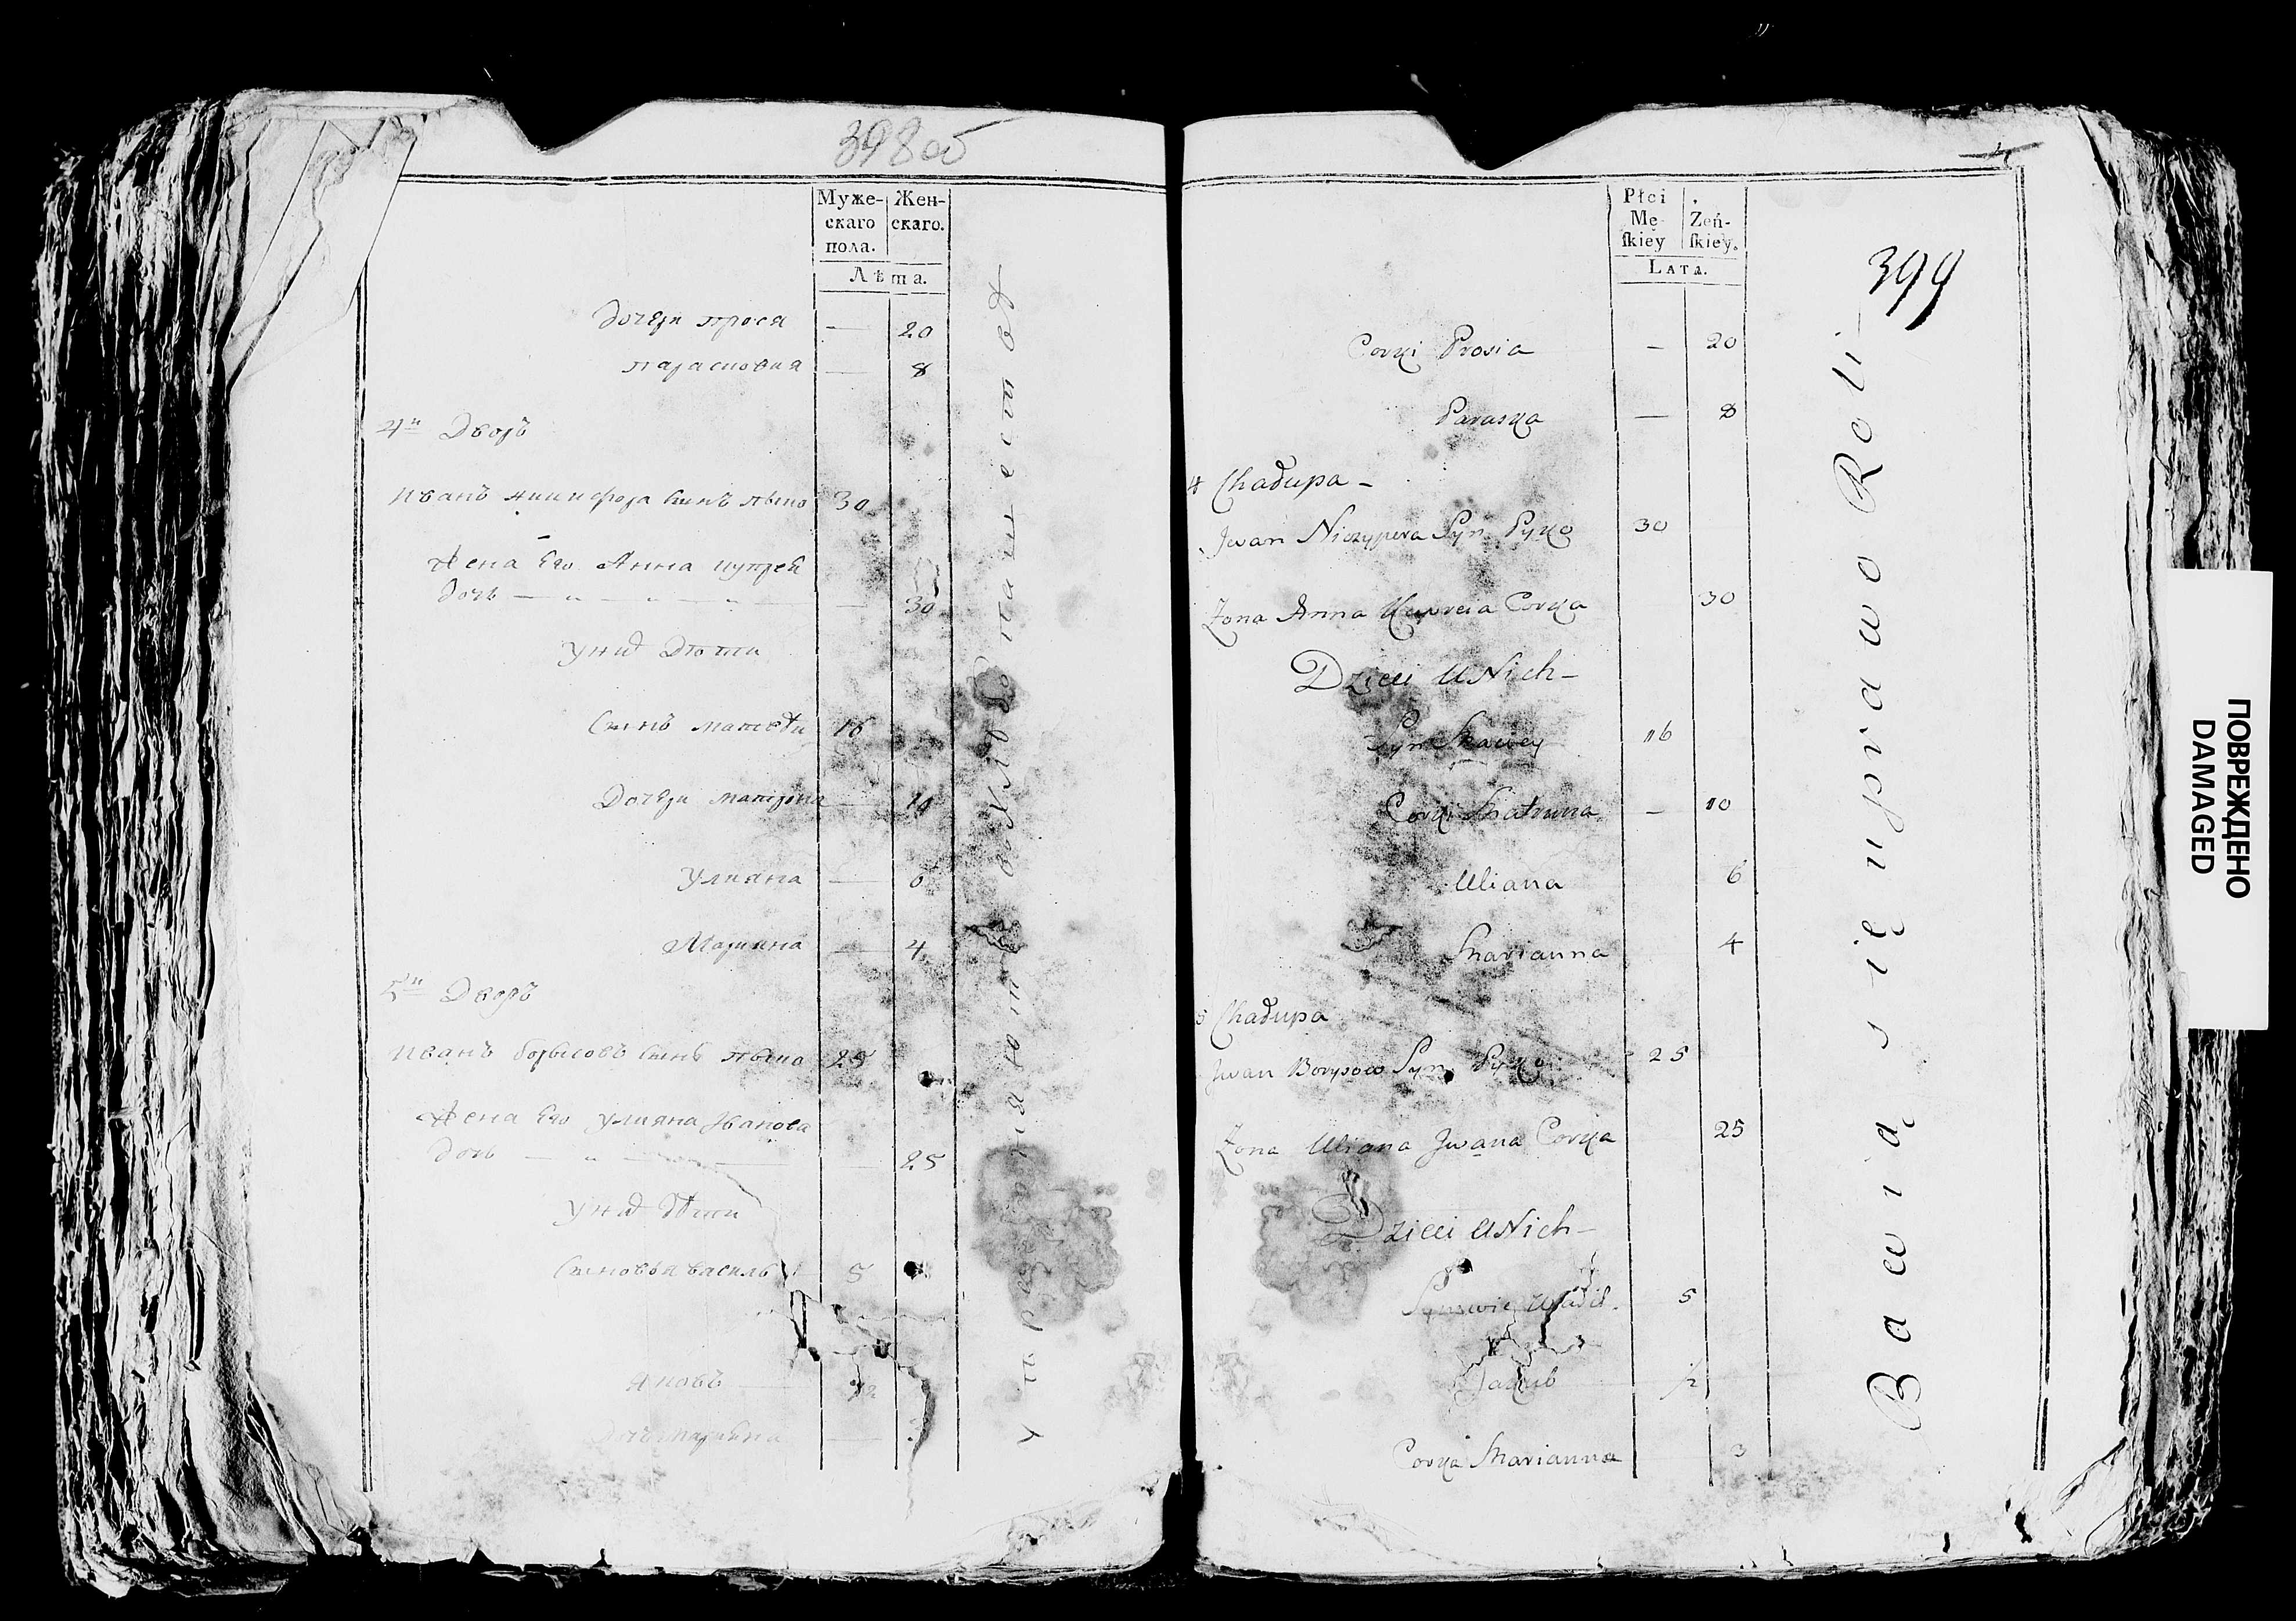 398 об
Муже-
скаго
пола.
Жен-
скаго.
Лѣта.
Дочери прося — 20
парасковия — 8
4й Дворъ
Иванъ никифора сынъ пыко 30
Жена Его Анна купрея
дочь — 30
У них Дети
Сынъ матвей 16
Дочери матрона — 10
Улиана — 6
Мариана — 4
5й Дворъ
Иванъ борысовъ сынъ пыко 25
Жена Его улиана Иванова
дочь — 25
У них Дети
Сыновья василь 5
яковъ 1/2
дочь мариана — 3
упражняются в хлебо пашестве
399
Płci
Mę-
ſkiey
Żeń-
ſkiey.
LATA.
Corki Prosia — 20
Paraska — 8
4 Chadupa –
Jwan Niczypera Syn Pyko 30
Zona Anna Kupreia Corka 30
Dzieci u Nich –
Syn 16
Corki Matruna — 10
Uliana 6
Marianna 4
5 Chadupa
Jwan Borysow Syn Pyko 25
Zona Uliana Jwana Corka 25
Dzieci u Nich –
Synowie Wasil. 5
Jakub 1/2
Corka Marianna 3
Bawią się uprawo Roli
ПОВРЕЖДЕНО
DAMAGED